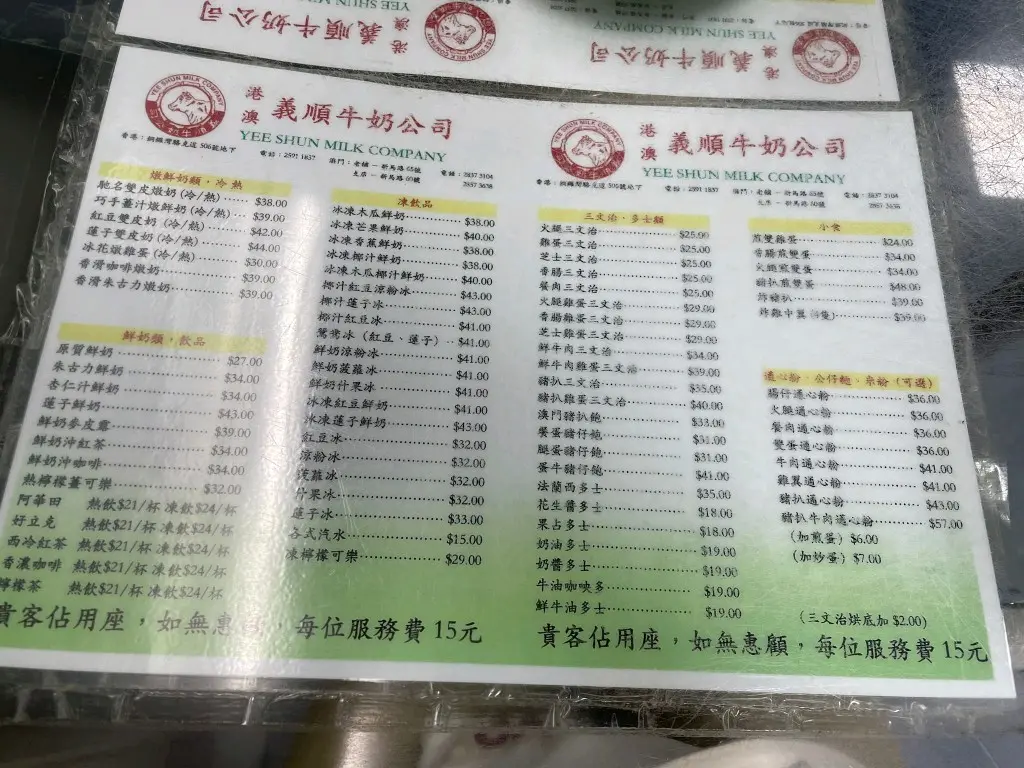 港澳 義順牛奶公司
YEE SHUN MILK COMPANY
YEE SHUN MILK COMPANY
港澳 義順牛奶公司
YEE SHUN MILK COMPANY
YEE SHUN MILK COMPANY
YEE SHUN MILK COMPANY
港澳 義順牛奶公司
YEE SHUN MILK COMPANY
香港：銅鑼灣駱克道 506號地下 電話：2591 1837 澳門：老舖 － 新馬路 65號 電話：2837 3104
支店 － 新馬路 60號 2857 3638
燉鮮奶類．冷熱
馳名雙皮燉奶 (冷/熱) $38.00
巧手薑汁燉鮮奶 (冷/熱) $39.00
紅豆雙皮奶 (冷/熱) $42.00
蓮子雙皮奶 (冷/熱) $44.00
冰花燉雞蛋 (冷/熱) $30.00
香滑咖啡燉奶 $39.00
香滑朱古力燉奶 $39.00
鮮奶類．飲品
原質鮮奶 $27.00
朱古力鮮奶 $34.00
杏仁汁鮮奶 $34.00
蓮子鮮奶 $43.00
鮮奶麥皮露 $39.00
鮮奶沖紅茶 $34.00
鮮奶沖咖啡 $34.00
熱檸檬薑可樂 $32.00
阿華田 熱飲$21/杯 凍飲$24/杯
好立克 熱飲$21/杯 凍飲$24/杯
西冷紅茶 熱飲$21/杯 凍飲$24/杯
香濃咖啡 熱飲$21/杯 凍飲$24/杯
檸檬茶 熱飲$21/杯 凍飲$24/杯
凍飲品
冰凍木瓜鮮奶 $38.00
冰凍芒果鮮奶 $40.00
冰凍香蕉鮮奶 $38.00
冰凍椰汁鮮奶 $38.00
冰凍木瓜椰汁鮮奶 $40.00
椰汁紅豆涼粉冰 $43.00
椰汁蓮子冰 $43.00
椰汁紅豆冰 $41.00
鴛鴦冰 (紅豆、蓮子) $41.00
鮮奶涼粉冰 $41.00
鮮奶菠蘿冰 $41.00
鮮奶什果冰 $41.00
冰凍紅豆鮮奶 $41.00
冰凍蓮子鮮奶 $43.00
紅豆冰 $32.00
涼粉冰 $32.00
菠蘿冰 $32.00
什果冰 $32.00
蓮子冰 $33.00
各式汽水 $15.00
凍檸檬可樂 $29.00
貴客佔用座，如無惠顧，每位服務費 15元
YEE SHUN MILK COMPANY
港澳 義順牛奶公司
YEE SHUN MILK COMPANY
香港：銅鑼灣駱克道 506號地下 電話：2591 1837 澳門：老舖 － 新馬路 65號 電話：2837 3104
支店 － 新馬路 60號 2857 3638
三文治．多士類
火腿三文治 $25.00
雞蛋三文治 $25.00
芝士三文治 $25.00
香腸三文治 $25.00
餐肉三文治 $25.00
火腿雞蛋三文治 $29.00
香腸雞蛋三文治 $29.00
芝士雞蛋三文治 $29.00
鮮牛肉三文治 $34.00
鮮牛肉雞蛋三文治 $39.00
豬扒三文治 $35.00
豬扒雞蛋三文治 $40.00
澳門豬扒飽 $33.00
餐蛋豬仔飽 $31.00
腿蛋豬仔飽 $31.00
蛋牛豬仔飽 $41.00
法蘭西多士 $35.00
花生醬多士 $18.00
果占多士 $18.00
奶油多士 $19.00
奶醬多士 $19.00
牛油咖央多 $19.00
鮮牛油多士 $19.00
小食
煎雙雞蛋 $24.00
香腸煎雙蛋 $34.00
火腿煎雙蛋 $34.00
豬扒煎雙蛋 $48.00
炸豬扒 $39.00
炸雞中翼 $39.00
通心粉、公仔麵、米粉 (可選)
腸仔通心粉 $36.00
火腿通心粉 $36.00
餐肉通心粉 $36.00
雙蛋通心粉 $36.00
牛肉通心粉 $41.00
雞翼通心粉 $41.00
豬扒通心粉 $43.00
豬扒牛肉通心粉 $57.00
(加煎蛋) $6.00
(加炒蛋) $7.00
(三文治烘底加 $2.00)
貴客佔用座，如無惠顧，每位服務費 15元